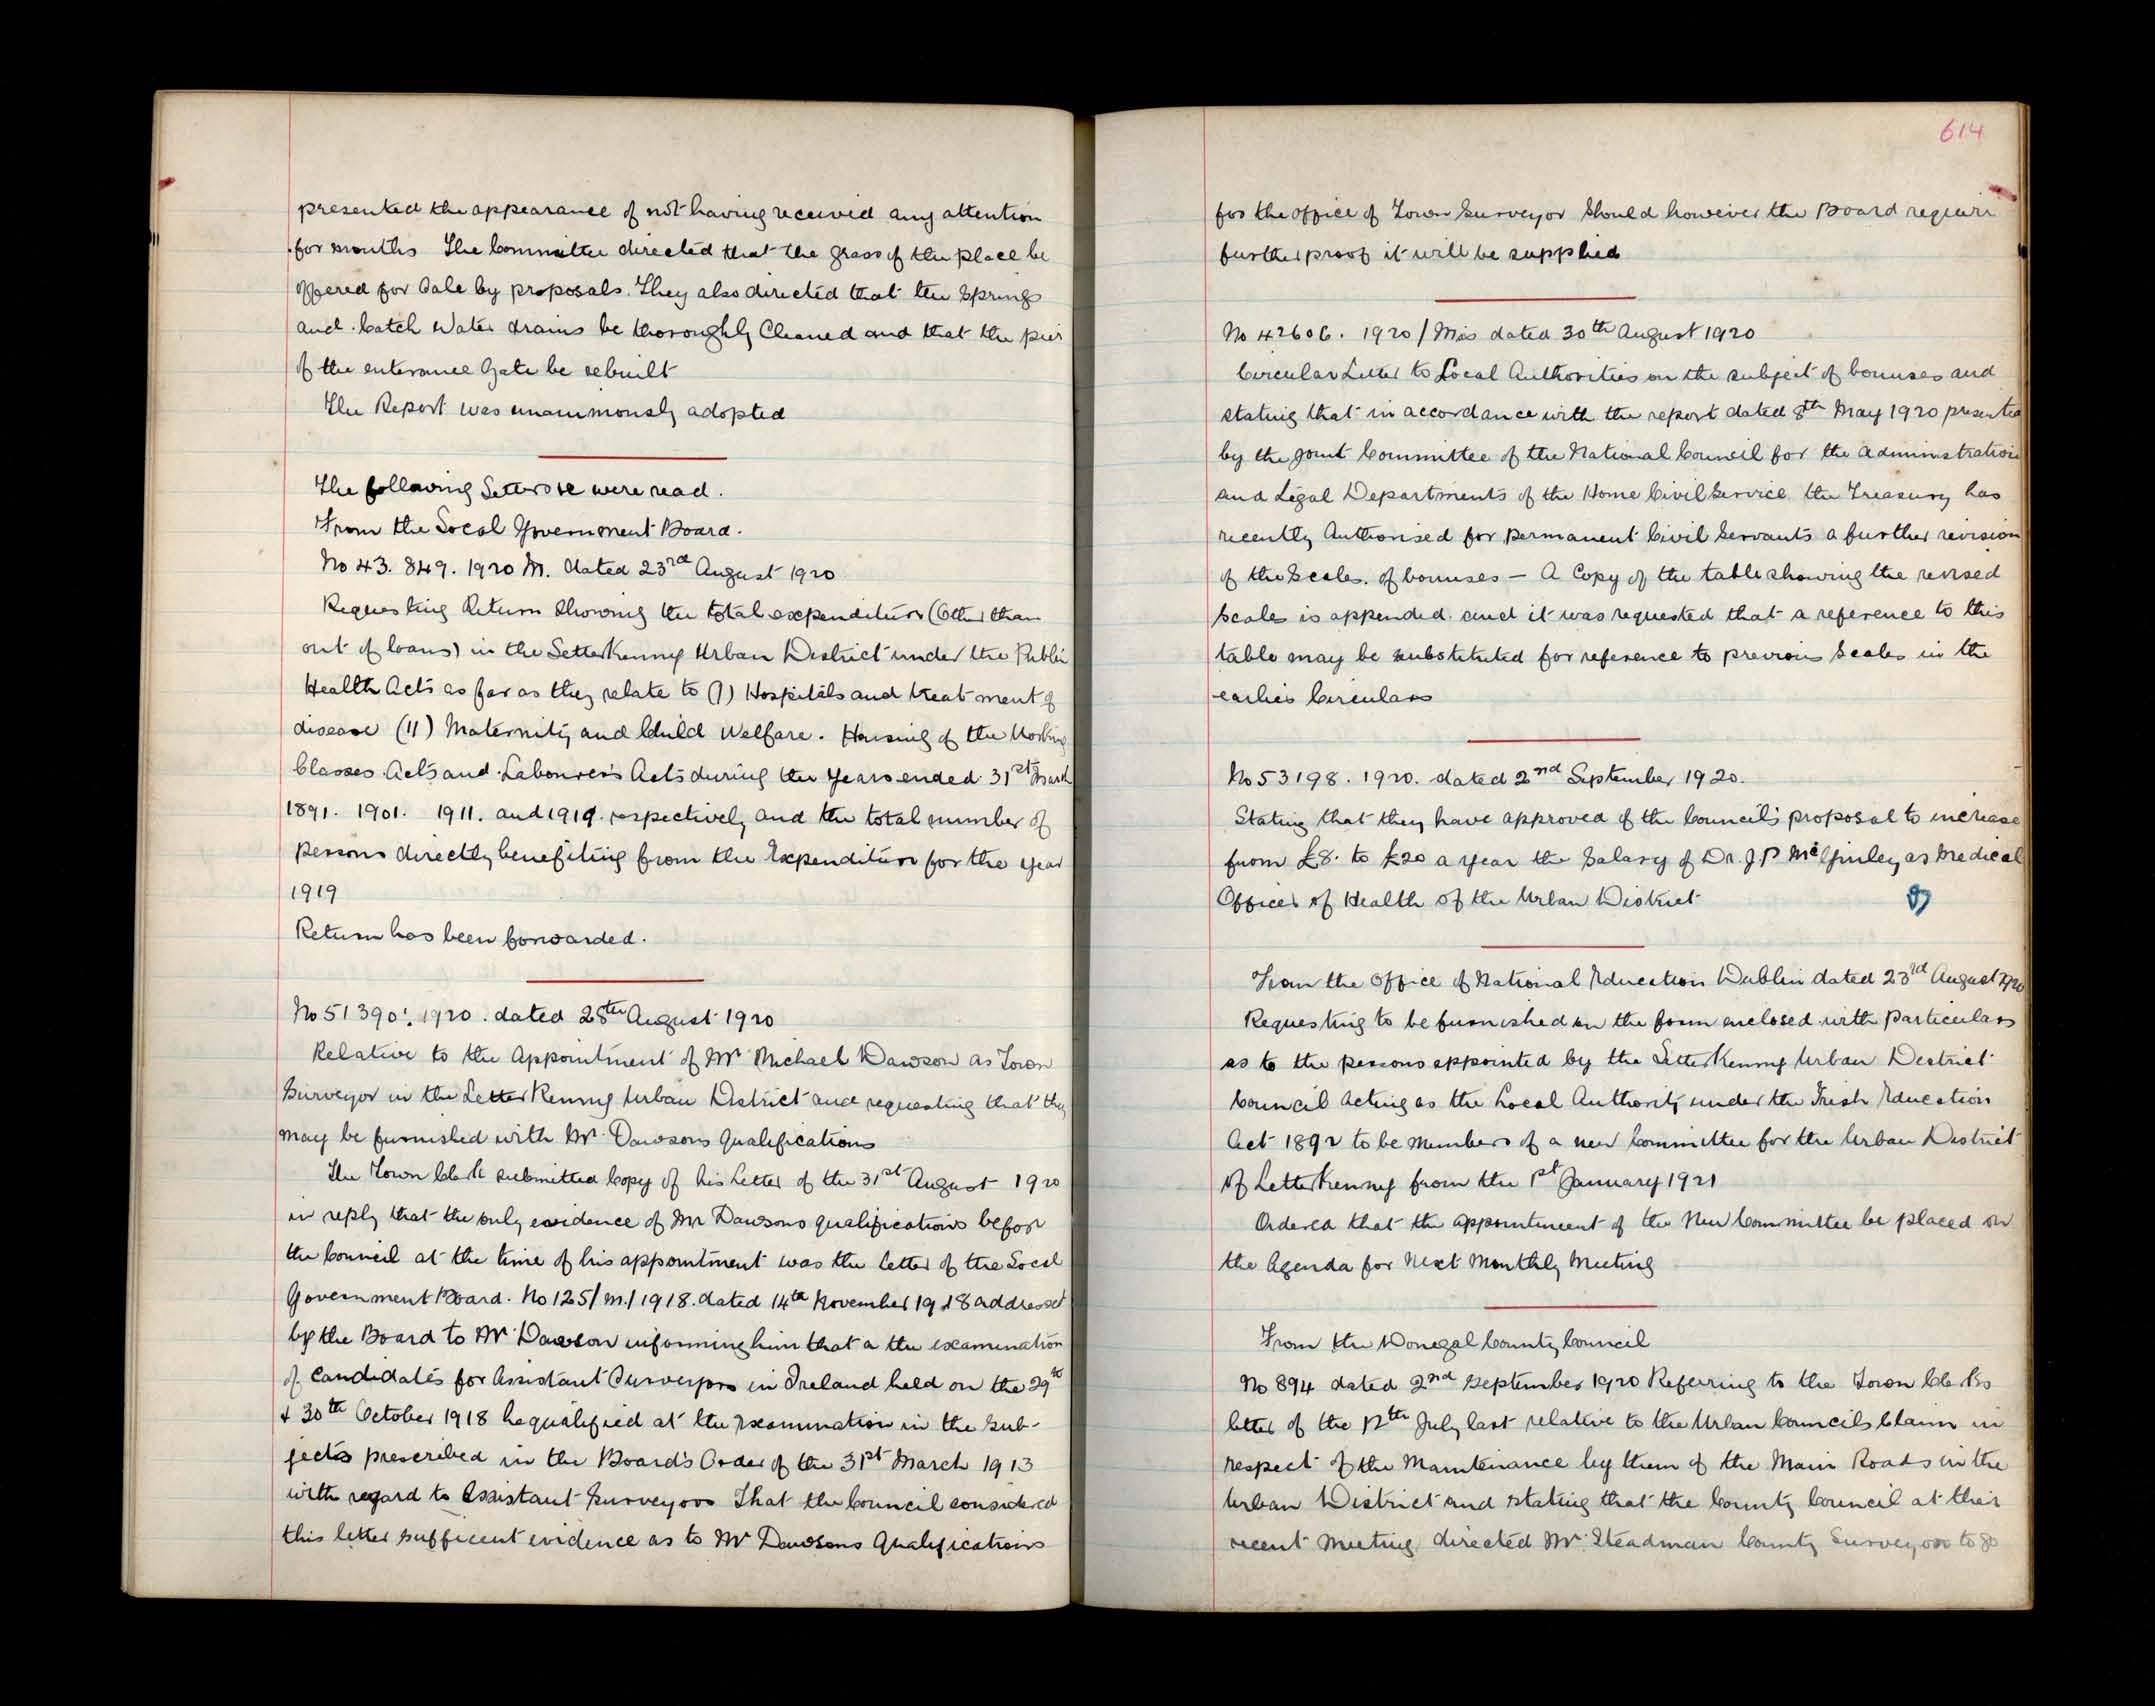 presented the appearance of not having received any attention
for months The Committee directed that the grass of the place be
offered for Sale by proposals. They also directed that the Springs
and Catch Water drains be thoroughly Cleaned and that the pier
of the enterance Gate be rebuilt
The Report was unanimously adopted
The following Letters were read.
From the Local Government Board.
No 43. 849. 1920 M. dated 23rd August 1920
Requesting Return Showing the total expenditure (Other than
out of loans) in the Letterkenny Urban District under the Public
Health Acts as far as they relate to (1) Hospitals and treatment of
disease (11) Maternity and Child Welfare. Housing of the Working
Classes Acts and Labourers Acts during the Years ended 31st March
1891. 1901. 1911. and 1919 respectively and the total number of
persons directly benefiting from the Expenditure for the year
1919
Return has been forwarded.
No 51390. 1920. dated 28th August 1920
Relative to the Appointment of Mr Michael Dawson as Town
Surveyor in the Letterkenny Urban District and requesting that they
may be furnished with Mr Dawsons Qualifications
The Town Clerk submitted Copy of his Letter of the 31st August 1920
in reply that the only evidence of Mr Dawsons qualifications before
the Council at the time of his appointment was the letter of the Local
Government Board. No 125/M/1918. dated 14th November 1918 addressed
by the Board to Mr Dawson informing him that a the examination
of Candidates for Assistant Surveyors in Ireland held on the 29th
& 30th October 1918 he qualified at the Examination in the Sub-
jects prescribed in the Board's Order of the 31st March 1913
with regard to Assistant Surveyors That the Council considered
this letter sufficent evidence as to Mr Dawsons Qualifications
614
for the office of Town Surveyor Should however the Board require
further proof it will be supplied
No 42606. 1920/Mis dated 30th August 1920
Circular Letter to Local Authorities on the subject of bonuses and
stating that in accordance with the report dated 8th May 1920 presented
by the Joint Committee of the National Council for the Administration
and Legal Departments of the Home Civil Service the Treasury has
recently Authorised for permanent Civil Servants a further revision
of the Scales of bonuses — A Copy of the table showing the revised
Scales is appended and it was requested that a reference to this
table may be substituted for reference to previous Scales in the
earlier Circulars
No 53198. 1920. dated 2nd September 1920.
Stating that they have approved of the Council's proposal to increase
from £8. to £20 a year the Salary of Dr. J.P McGinley as Medical
Officer of Health of the Urban District
From the Office of National Education Dublin dated 23rd August 1920
Requesting to be furnished on the form enclosed with particulars
as to the persons appointed by the Letterkenny Urban District
Council Acting as the Local Authority under the Irish Education
Act 1892 to be members of a new Committee for the Urban District
of Letterkenny from the 1st January 1921
Ordered that the appointment of the New Committee be placed on
the Agenda for Next Monthly Meeting
From the Donegal County Council
No 894 dated 2nd September 1920 Referring to the Town Clerks
letter of the 12th July last relative to the Urban Councils Claim in
respect of the Maintenance by them of the Main Roads in the
Urban District and stating that the County Council at their
recent Meeting directed Mr Steadman County Surveyor to go